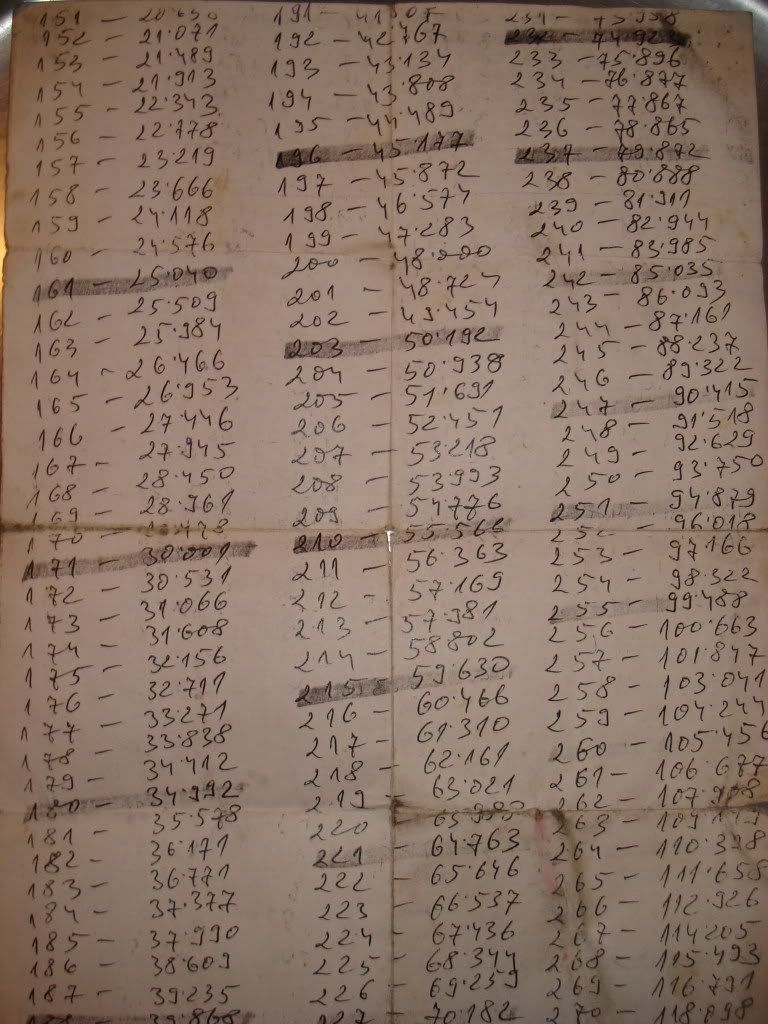 151 – 20·630
152 – 21·071
153 – 21·489
154 – 21·913
155 – 22·343
156 – 22·778
157 – 23·219
158 – 23·666
159 – 24·118
160 – 24·576
161 – 25·040
162 – 25·509
163 – 25·984
164 – 26·466
165 – 26·953
166 – 27·446
167 – 27·945
168 – 28·450
169 – 28·961
170 –
171 – 30·001
172 – 30·531
173 – 31·066
174 – 31·608
175 – 32·156
176 – 32·711
177 – 33·271
178 – 33·838
179 – 34·412
180 – 34·992
181 – 35·578
182 – 36·171
183 – 36·771
184 – 37·377
185 – 37·990
186 – 38·609
187 – 39·235
188 – 39·868
191 –
192 – 42·767
193 – 43·134
194 – 43·808
195 – 44·489
196 – 45·177
197 – 45·872
198 – 46·574
199 – 47·283
200 – 48·000
201 – 48·724
202 – 49·454
203 – 50·192
204 – 50·938
205 – 51·691
206 – 52·451
207 – 53·218
208 – 53·993
209 – 54·776
210 – 55·566
211 – 56·363
212 – 57·169
213 – 57·981
214 – 58·802
215 – 59·630
216 – 60·466
217 – 61·310
218 – 62·161
219 – 63·021
220
221 – 64·763
222 – 65·646
223 – 66·537
224 – 67·436
225 – 68·344
226 – 69·259
227 – 70·182
231 –
232 – 74·923
233 – 75·896
234 – 76·877
235 – 77·867
236 – 78·865
237 – 79·872
238 – 80·888
239 – 81·911
240 – 82·944
241 – 83·985
242 – 85·035
243 – 86·093
244 – 87·161
245 – 88·237
246 – 89·322
247 – 90·415
248 – 91·518
249 – 92·629
250 – 93·750
251 – 94·879
252 – 96·018
253 – 97·166
254 – 98·322
255 – 99·488
256 – 100·663
257 – 101·847
258 – 103·041
259 – 104·244
260 – 105·456
261 – 106·677
262 – 107·908
263 –
264 – 110·398
265 – 111·658
266 – 112·926
267 – 114·205
268 – 115·493
269 – 116·791
270 – 118·098